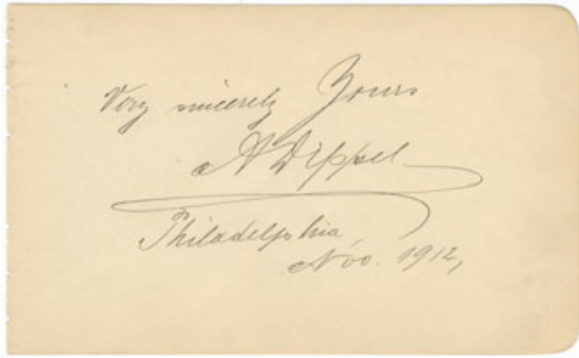 Very sincerely Yours
A Dippel
Philadelphia
Nov. 1912,